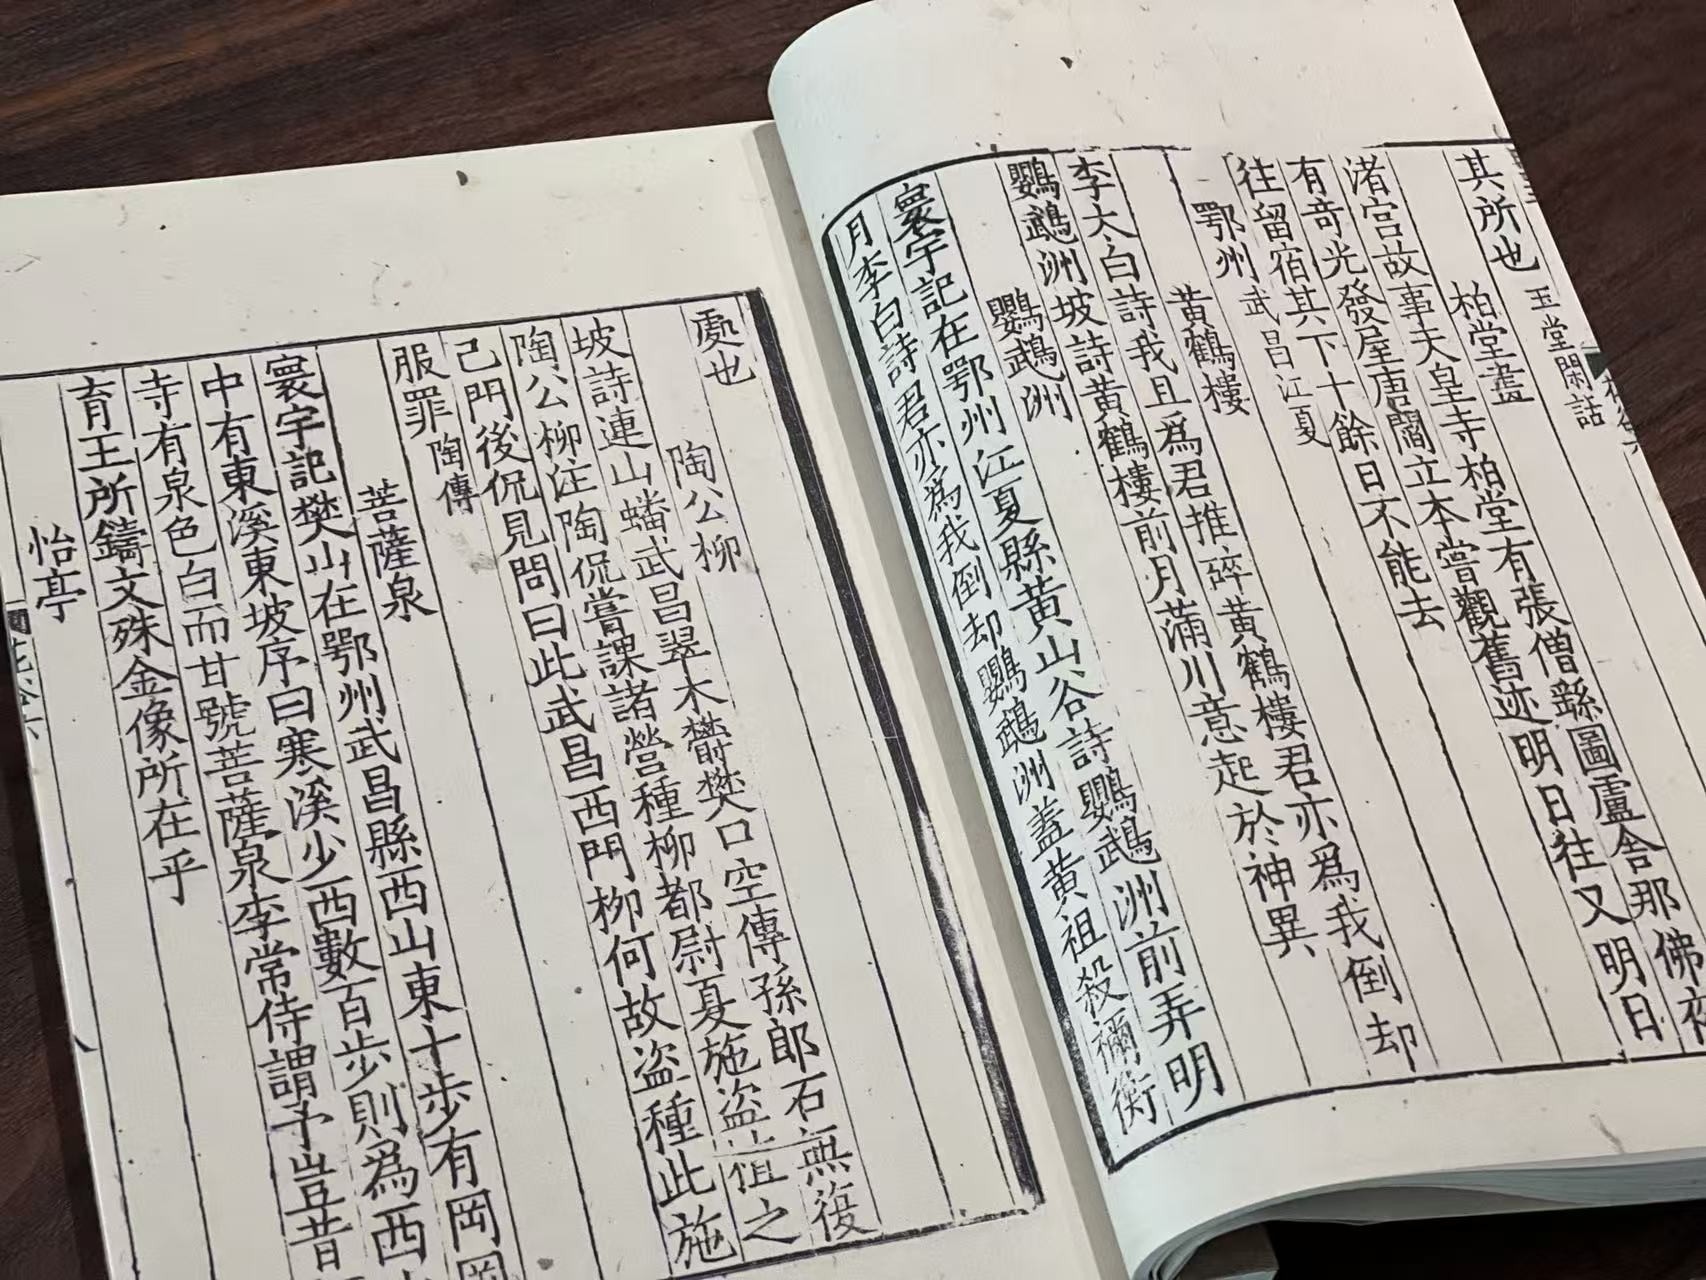 其所也 玉堂閑話
柏堂畫
渚宮故事夫皇寺柏堂有張僧繇圖盧舍那佛夜
有奇光發屋唐閻立本嘗觀舊迹明日往又明日
往留宿其下十餘日不能去
鄂州 武昌江夏
黄鶴樓
李大白詩我且爲君推碎黄鶴樓君亦爲我倒却
鸚鵡洲坡詩黄鶴樓前月滿川意起於神異
鸚鵡洲
寰宇記在鄂州江夏縣黄山谷詩鸚鵡洲前弄明
月李白詩君亦為我倒却鸚鵡洲蓋黄祖殺禰衡
處也
陶公柳
坡詩連山蟠武昌翠木欝樊口空傳孫郎石無復
陶公柳注陶侃嘗課諸營種柳都尉夏施盗植之
己門後侃見問曰此武昌西門柳何故盗種此施
服罪 陶傳
菩薩泉
寰宇記樊山在鄂州武昌縣西山東十步有岡岡
中有東溪東坡序曰寒溪少西數百步則為西
寺有泉色白而甘號菩薩泉李常侍謂予豈昔
育王所鑄文殊金像所在乎
怡亭